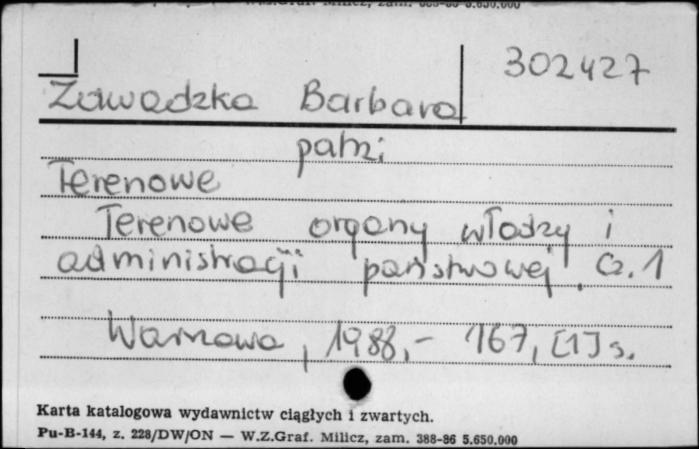 W.Z.Graf. Milicz, zam. 388-86 5.650.000
302427
Zawadzka Barbara
patrz:
Terenowe
Terenowe organy władzy i
administracji państwowej. Cz. 1
Warszawa, 1988,- 167, [1] s.
Karta katalogowa wydawnictw ciągłych i zwartych.
Pu-B-144, z. 228/DW/ON — W.Z.Graf. Milicz, zam. 388-86 5.650.000